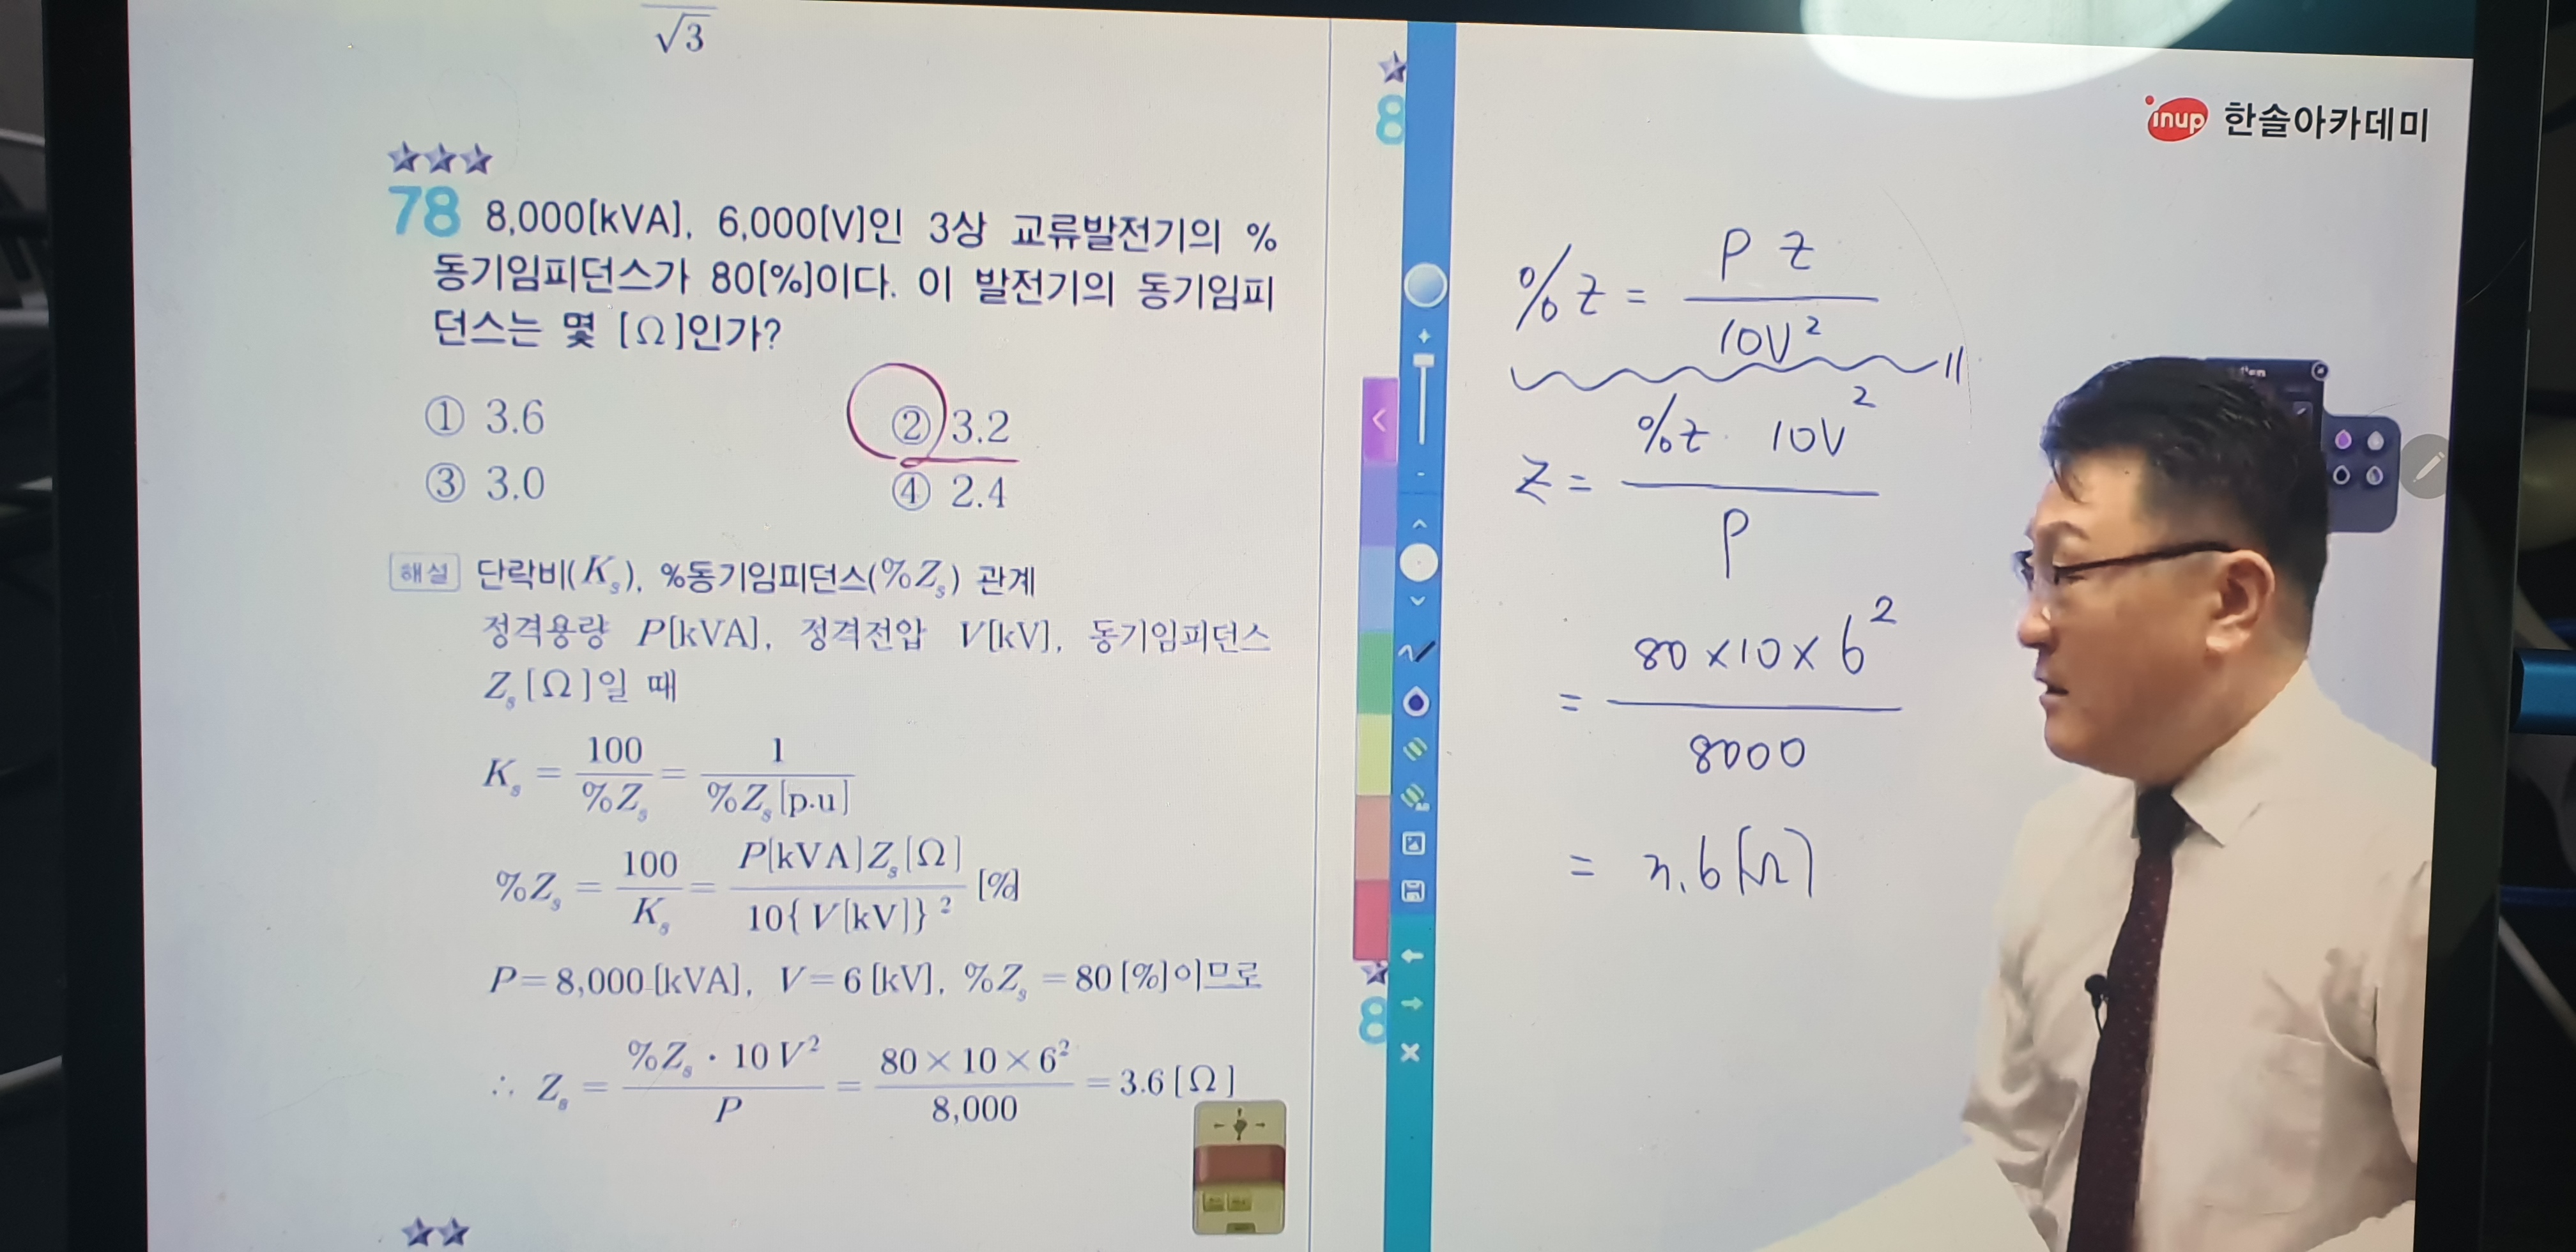 √3
★★★
78 8,000[kVA], 6,000[V]인 3상 교류발전기의 %
동기임피던스가 80[%]이다. 이 발전기의 동기임피
던스는 몇 [Ω]인가?
① 3.6 ② 3.2
③ 3.0 ④ 2.4
해설 단락비(Kₛ), %동기임피던스(%Zₛ) 관계
정격용량 P[kVA], 정격전압 V[kV], 동기임피던스
Zₛ[Ω]일 때
Kₛ = 100/%Zₛ = 1/%Zₛ[p.u]
%Zₛ = 100/Kₛ = P[kVA]Zₛ[Ω]/10{V[kV]}² [%]
P=8,000[kVA], V=6[kV], %Zₛ=80[%]이므로
∴ Zₛ = %Zₛ·10V²/P = 80×10×6²/8,000 = 3.6[Ω]
★★
★
8
★
8
inup 한솔아카데미
%Z = PZ/10V²
Z = %Z 10V²/P
= 80×10×6²/8000